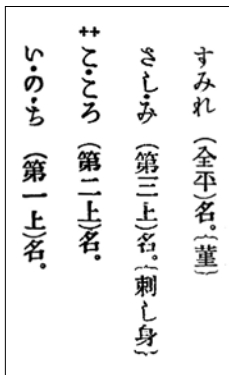 すみれ (全平)名。{菫}
さ・し・み (第三上)名。{刺し身}
++こ・ころ (第二上)名。
い・の・ち (第一上)名。